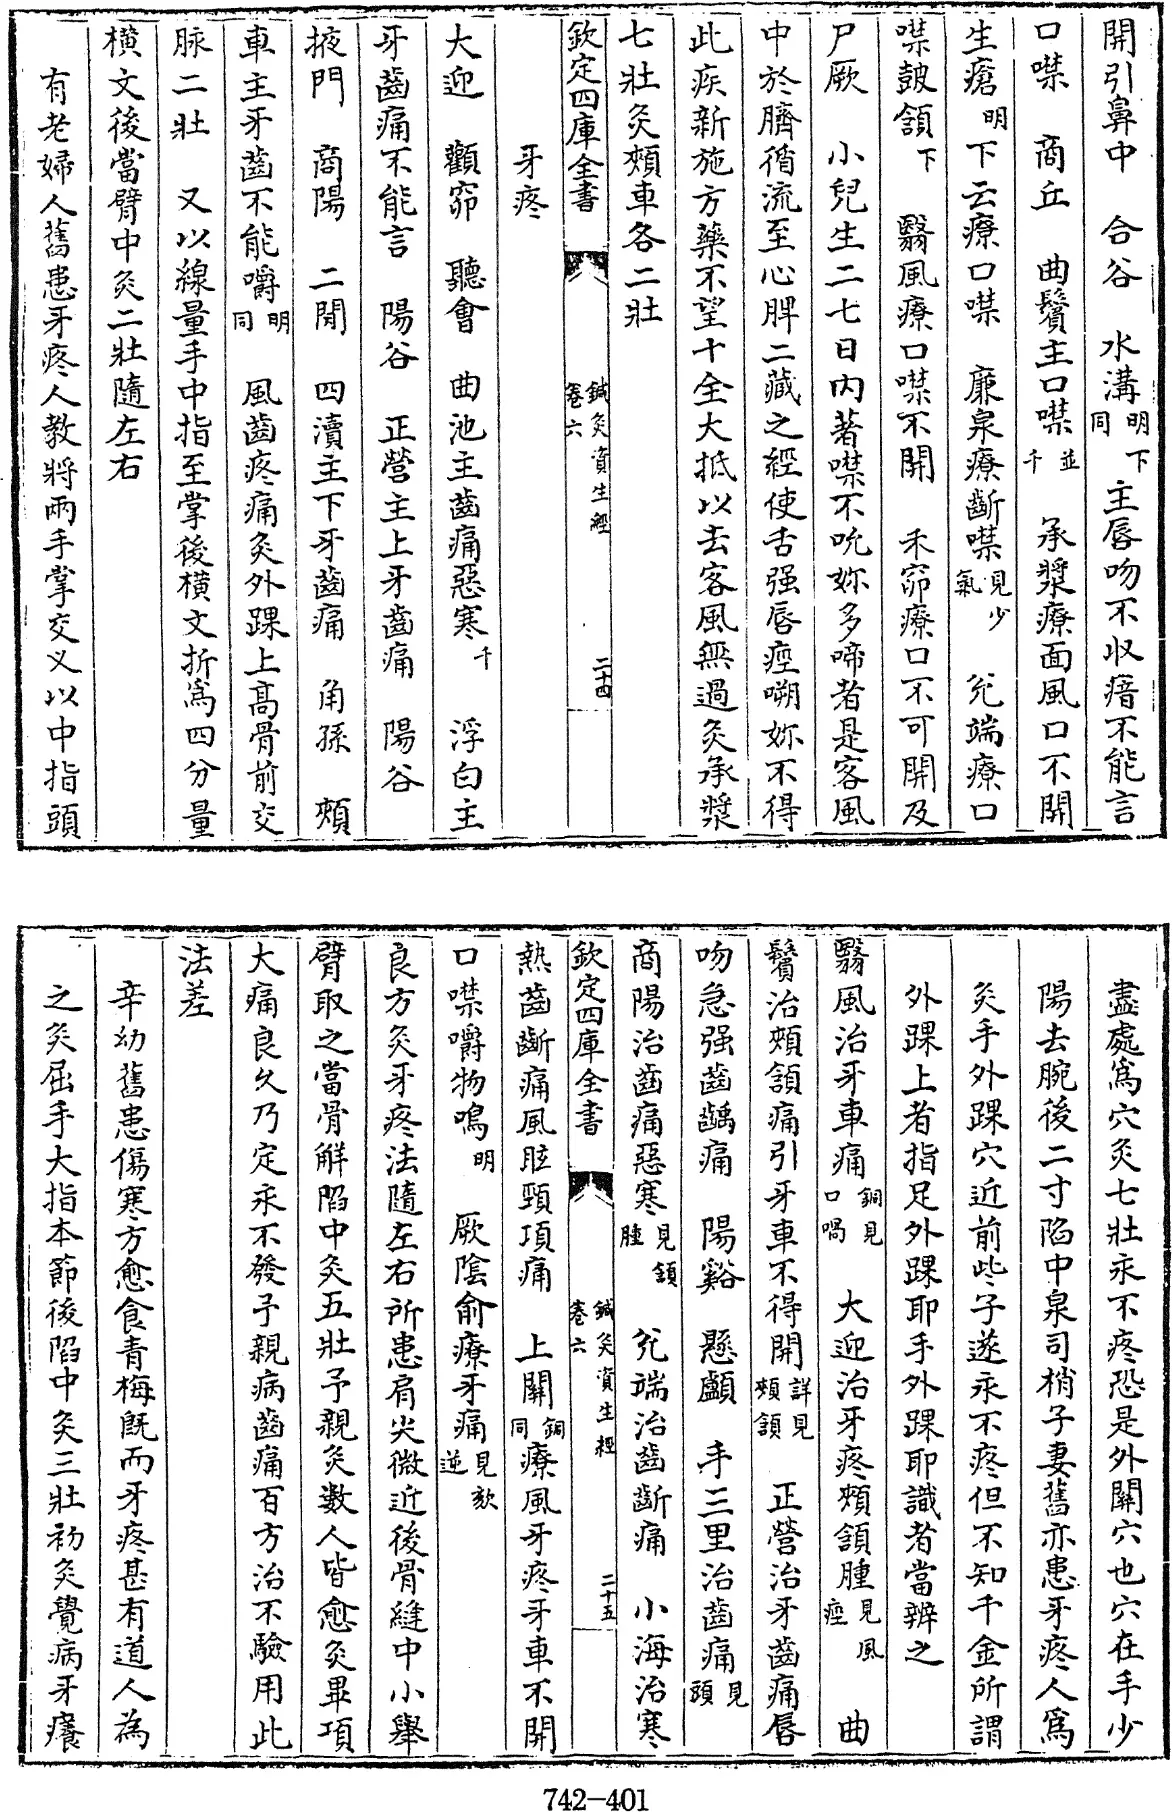 開引鼻中　合谷　水溝明下同主唇吻不收瘖不能言
口噤　商丘　曲鬢主口噤並千　承漿療面風口不開
生瘡明下云療口噤　廉泉療斷噤見少氣　兊端療口
噤皷頷下　翳風療口噤不開　禾窌療口不可開及
尸厥　小兒生二七日内著噤不吮妳多啼者是客風
中於臍循流至心脾二藏之經使舌强唇痙嗍妳不得
此疾新施方藥不望十全大抵以去客風無過灸承漿
七壯灸頰車各二壯
欽定四庫全書　鍼灸資生經卷六　二十四
牙疼
大迎　顴窌　聽會　曲池主齒痛惡寒千　浮白主
牙齒痛不能言　陽谷　正營主上牙齒痛　陽谷
掖門　商陽　二間　四瀆主下牙齒痛　角孫　頰
車主牙齒不能嚼明同　風齒疼痛灸外踝上高骨前交
脉二壯　又以線量手中指至掌後横文折爲四分量
横文後當臂中灸二壯隨左右
有老婦人舊患牙疼人教將兩手掌交义以中指頭
盡處爲穴灸七壯永不疼恐是外關穴也穴在手少
陽去腕後二寸陷中泉司梢子妻舊亦患牙疼人爲
灸手外踝穴近前些子遂永不疼但不知千金所謂
外踝上者指足外踝耶手外踝耶識者當辨之
翳風治牙車痛銅見口喎　大迎治牙疼頰頷腫見風痙　曲
鬢治頰頷痛引牙車不得開詳見頰頷　正營治牙齒痛唇
吻急强齒齲痛　陽谿　懸顱　手三里治齒痛見頭
商陽治齒痛惡寒見頷腫　兊端治齒斷痛　小海治寒
欽定四庫全書　鍼灸資生經卷六　二十五
熱齒斷痛風眩頸項痛　上關銅同療風牙疼牙車不開
口噤嚼物鳴明　厥陰俞療牙痛見欬逆
良方灸牙疼法隨左右所患肩尖微近後骨縫中小舉
臂取之當骨解陷中灸五壯予親灸數人皆愈灸畢項
大痛良久乃定永不發予親病齒痛百方治不驗用此
法差
辛幼舊患傷寒方愈食青梅旣而牙疼甚有道人為
之灸屈手大指本節後陷中灸三壯初灸覺病牙癢
742-401